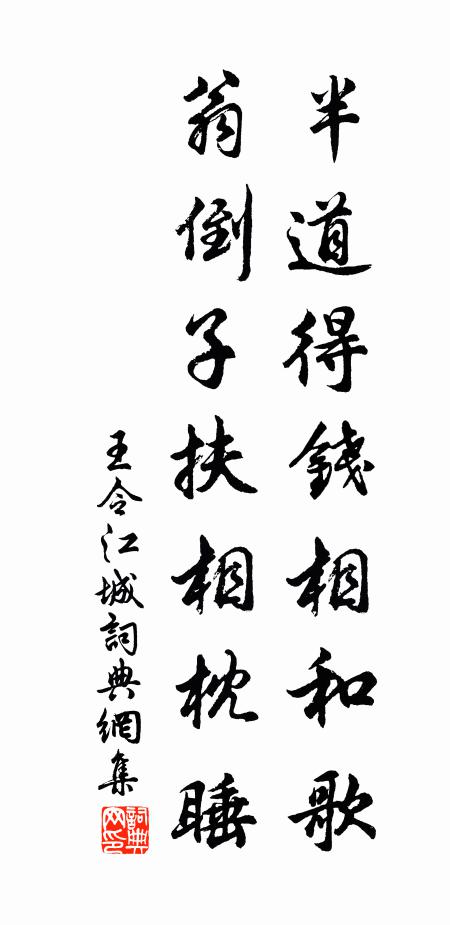 半道得錢相和歌
翁倒子扶相枕睡
王令江城詞典網集
詞典网印